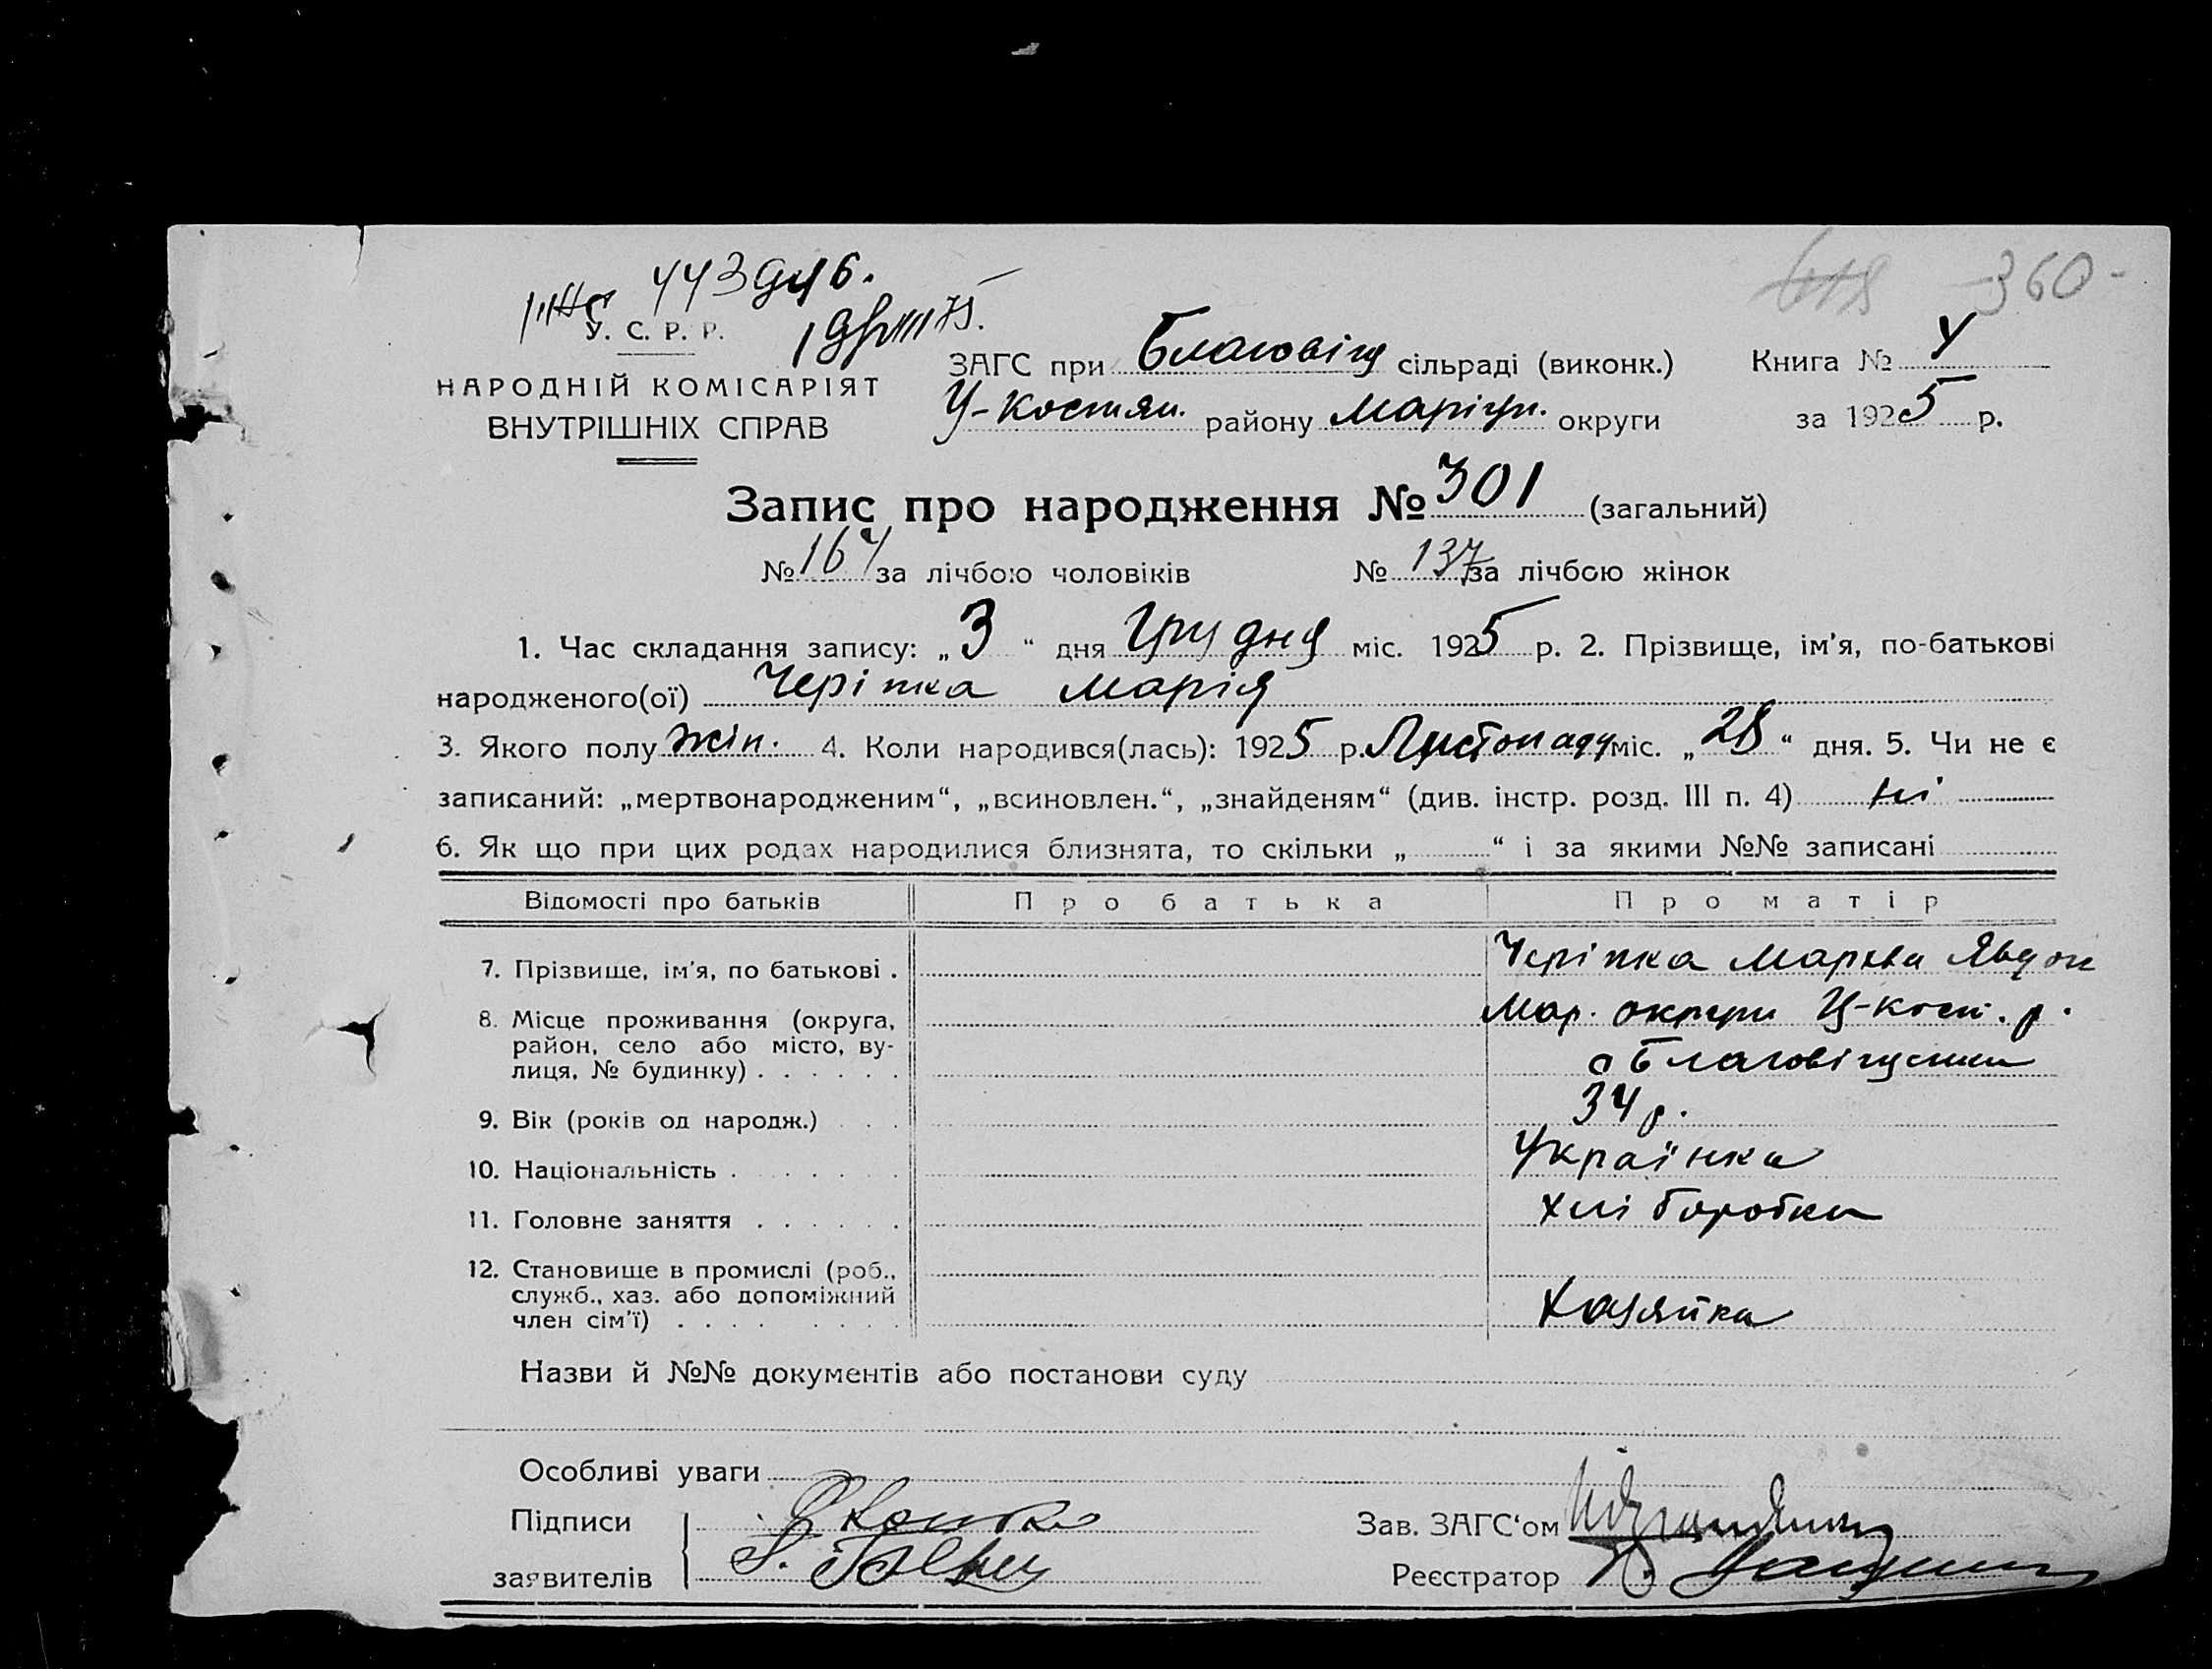 360-
У. С. Р. Р.
НАРОДНІЙ КОМІСАРІЯТ
ВНУТРІШНІХ СПРАВ
ЗАГС при Благовіщ сільраді (виконк.) Книга №
У-Костян. району Маріуп. округи за 1925 р.
Запис про народження № 301 (загальний)
№ 164 за лічбою чоловіків № 137 за лічбою жінок
1. Час складання запису: „3“ дня Грудня міс. 1925 р. 2. Прізвище, ім'я, по-батькові
народженого(ої) Черіпка Марія
3. Якого полу жін. 4. Коли народився(лась): 1925 р. Листопаду міс. „28“ дня. 5. Чи не є
записаний: „мертвонародженим“, „всиновлен.“, „знайденям“ (див. інстр. розд. III п. 4) ні
6. Як що при цих родах народилися близнята, то скільки „ “ і за якими №№ записані
Відомості про батьків Про батька Про матір
7. Прізвище, ім'я, по батькові . Черіпка Явдок
8. Місце проживання (округа, Мар. округи Ц-Кост. р.
район, село або місто, ву-
лиця, № будинку) . . . . . . Благовіщенка
9. Вік (років од народж.) . . . 34 р.
10. Національність . . . . . . Українка
11. Головне заняття . . . . . . Хліборобка
12. Становище в промислі (роб.,
служб., хаз. або допоміжний
член сім'ї) . . . . . . . . Хазяйка
Назви й №№ документів або постанови суду
Особливі уваги
Підписи
Зав. ЗАГС‘ом
заявителів
Реєстратор